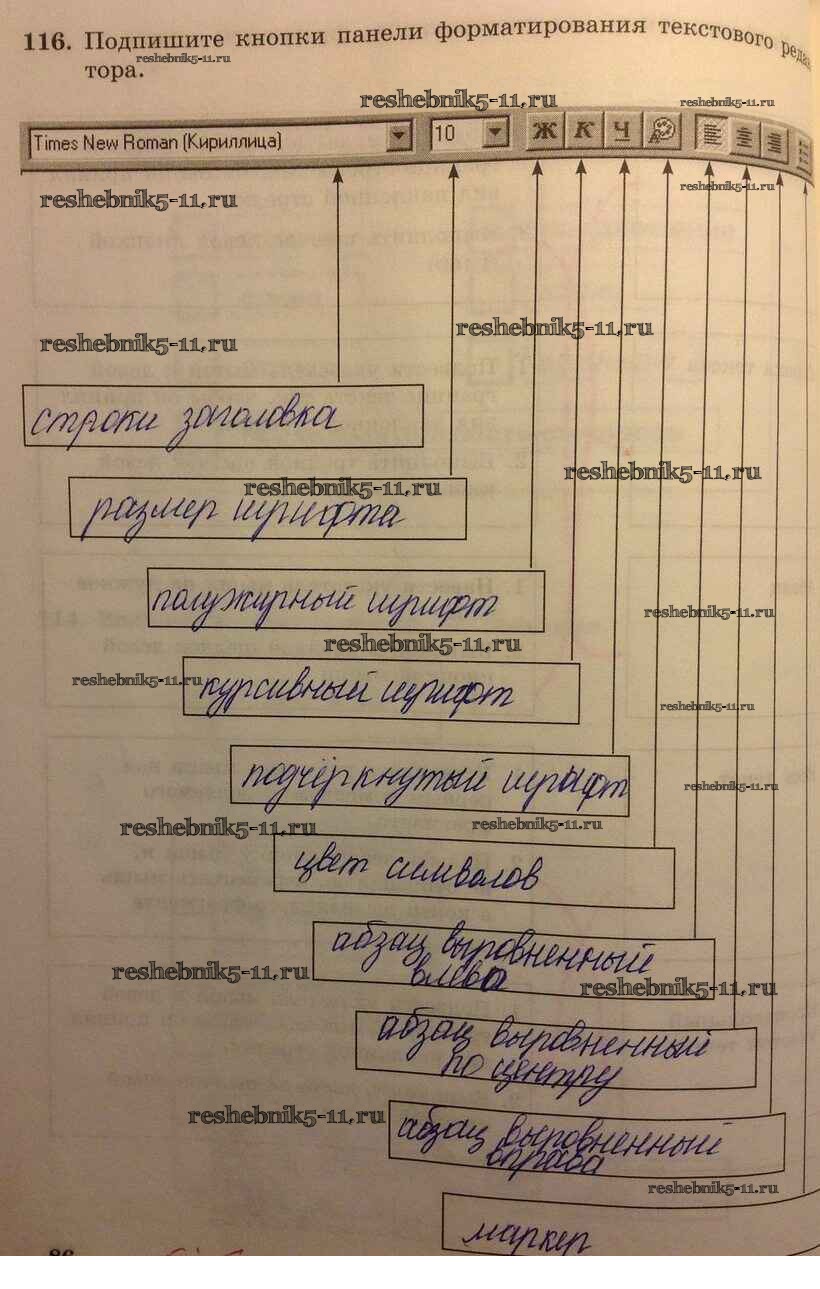 116. Подпишите кнопки панели форматирования текстового редак
тора.
reshebnik5-11.ru
reshebnik5-11.ru
reshebnik5-11.ru
Times New Roman (Кириллица) 10 Ж К Ч
reshebnik5-11.ru
reshebnik5-11.ru
reshebnik5-11.ru
reshebnik5-11.ru
строки заголовка
reshebnik5-11.ru
reshebnik5-11.ru
размер шрифта
полужирный шрифт
reshebnik5-11.ru
reshebnik5-11.ru
reshebnik5-11.ru
курсивный шрифт
reshebnik5-11.ru
подчёркнутый шрифт
reshebnik5-11.ru
reshebnik5-11.ru
reshebnik5-11.ru
цвет символов
абзац выровненный
влево
reshebnik5-11.ru
reshebnik5-11.ru
абзац выровненный
по центру
reshebnik5-11.ru
абзац выровненный
вправа
reshebnik5-11.ru
маркер
86